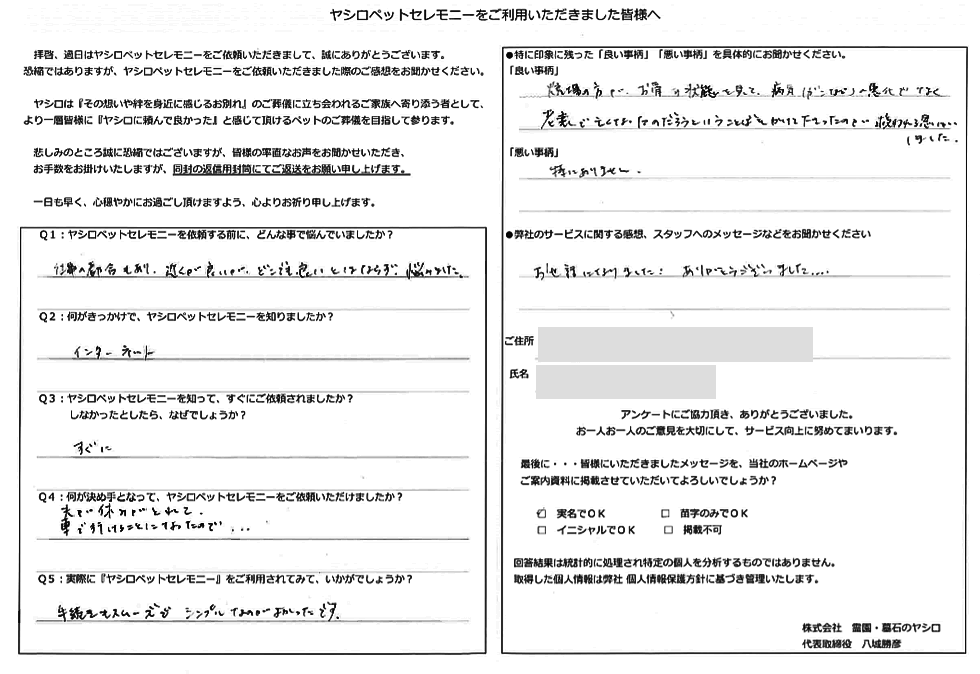 ヤシロペットセレモニーをご利用いただきました皆様へ
拝啓、過日はヤシロペットセレモニーをご依頼いただきまして、誠にありがとうございます。
恐縮ではありますが、ヤシロペットセレモニーをご依頼いただきました際のご感想をお聞かせください。
ヤシロは『その想いや絆を身近に感じるお別れ』のご葬儀に立ち会わられるご家族へ寄り添う者として、
より一層皆様に『ヤシロに頼んで良かった』と感じて頂けるペットのご葬儀を目指して参ります。
悲しみのところ誠に恐縮ではございますが、皆様の率直なお声をお聞かせいただき、
お手数をお掛けいたしますが、同封の返信用封筒にてご返送をお願い申し上げます。
一日も早く、心穏やかにお過ごし頂けますよう、心よりお祈り申し上げます。
Q1：ヤシロペットセレモニーを依頼する前に、どんな事で悩んでいましたか？
仕事の都合もあり、近くが良いが、どこでも良いとはならず、悩みました。
Q2：何がきっかけで、ヤシロペットセレモニーを知りましたか？
インターネット
Q3：ヤシロペットセレモニーを知って、すぐにご依頼されましたか？
しなかったとしたら、なぜでしょうか？
すぐに
Q4：何が決め手となって、ヤシロペットセレモニーをご依頼いただけましたか？
夫が休みがとれて、
車で行けることになったので...
Q5：実際に『ヤシロペットセレモニー』をご利用されてみて、いかがでしょうか？
手続きもスムーズで シンプルなのがよかったです。
●特に印象に残った「良い事柄」「悪い事柄」を具体的にお聞かせください。
「良い事柄」
の方が、お骨の状態を見て、病気(ガンなど)の悪化でなく
老衰で亡くなったのだろうということばをかけて下さったのが 救われる思いが
しました。
「悪い事柄」
特にありません。
●弊社のサービスに関する感想、スタッフへのメッセージなどをお聞かせください
お世話になりました！ ありがとうございました....
ご住所
氏名
アンケートにご協力頂き、ありがとうございました。
お一人お一人のご意見を大切にして、サービス向上に努めてまいります。
最後に・・・皆様にいただきましたメッセージを、当社のホームページや
ご案内資料に掲載させていただいてよろしいでしょうか？
☑ 実名でOK □ 苗字のみでOK
□ イニシャルでOK □ 掲載不可
回答結果は統計的に処理され特定の個人を分析するものではありません。
取得した個人情報は弊社 個人情報保護方針に基づき管理いたします。
株式会社 霊園・墓石のヤシロ
代表取締役 八城勝彦